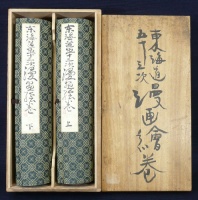 東海道
五十三次
漫画絵巻
東海道五十三次漫画絵巻 上
東海道五十三次漫画絵巻 下